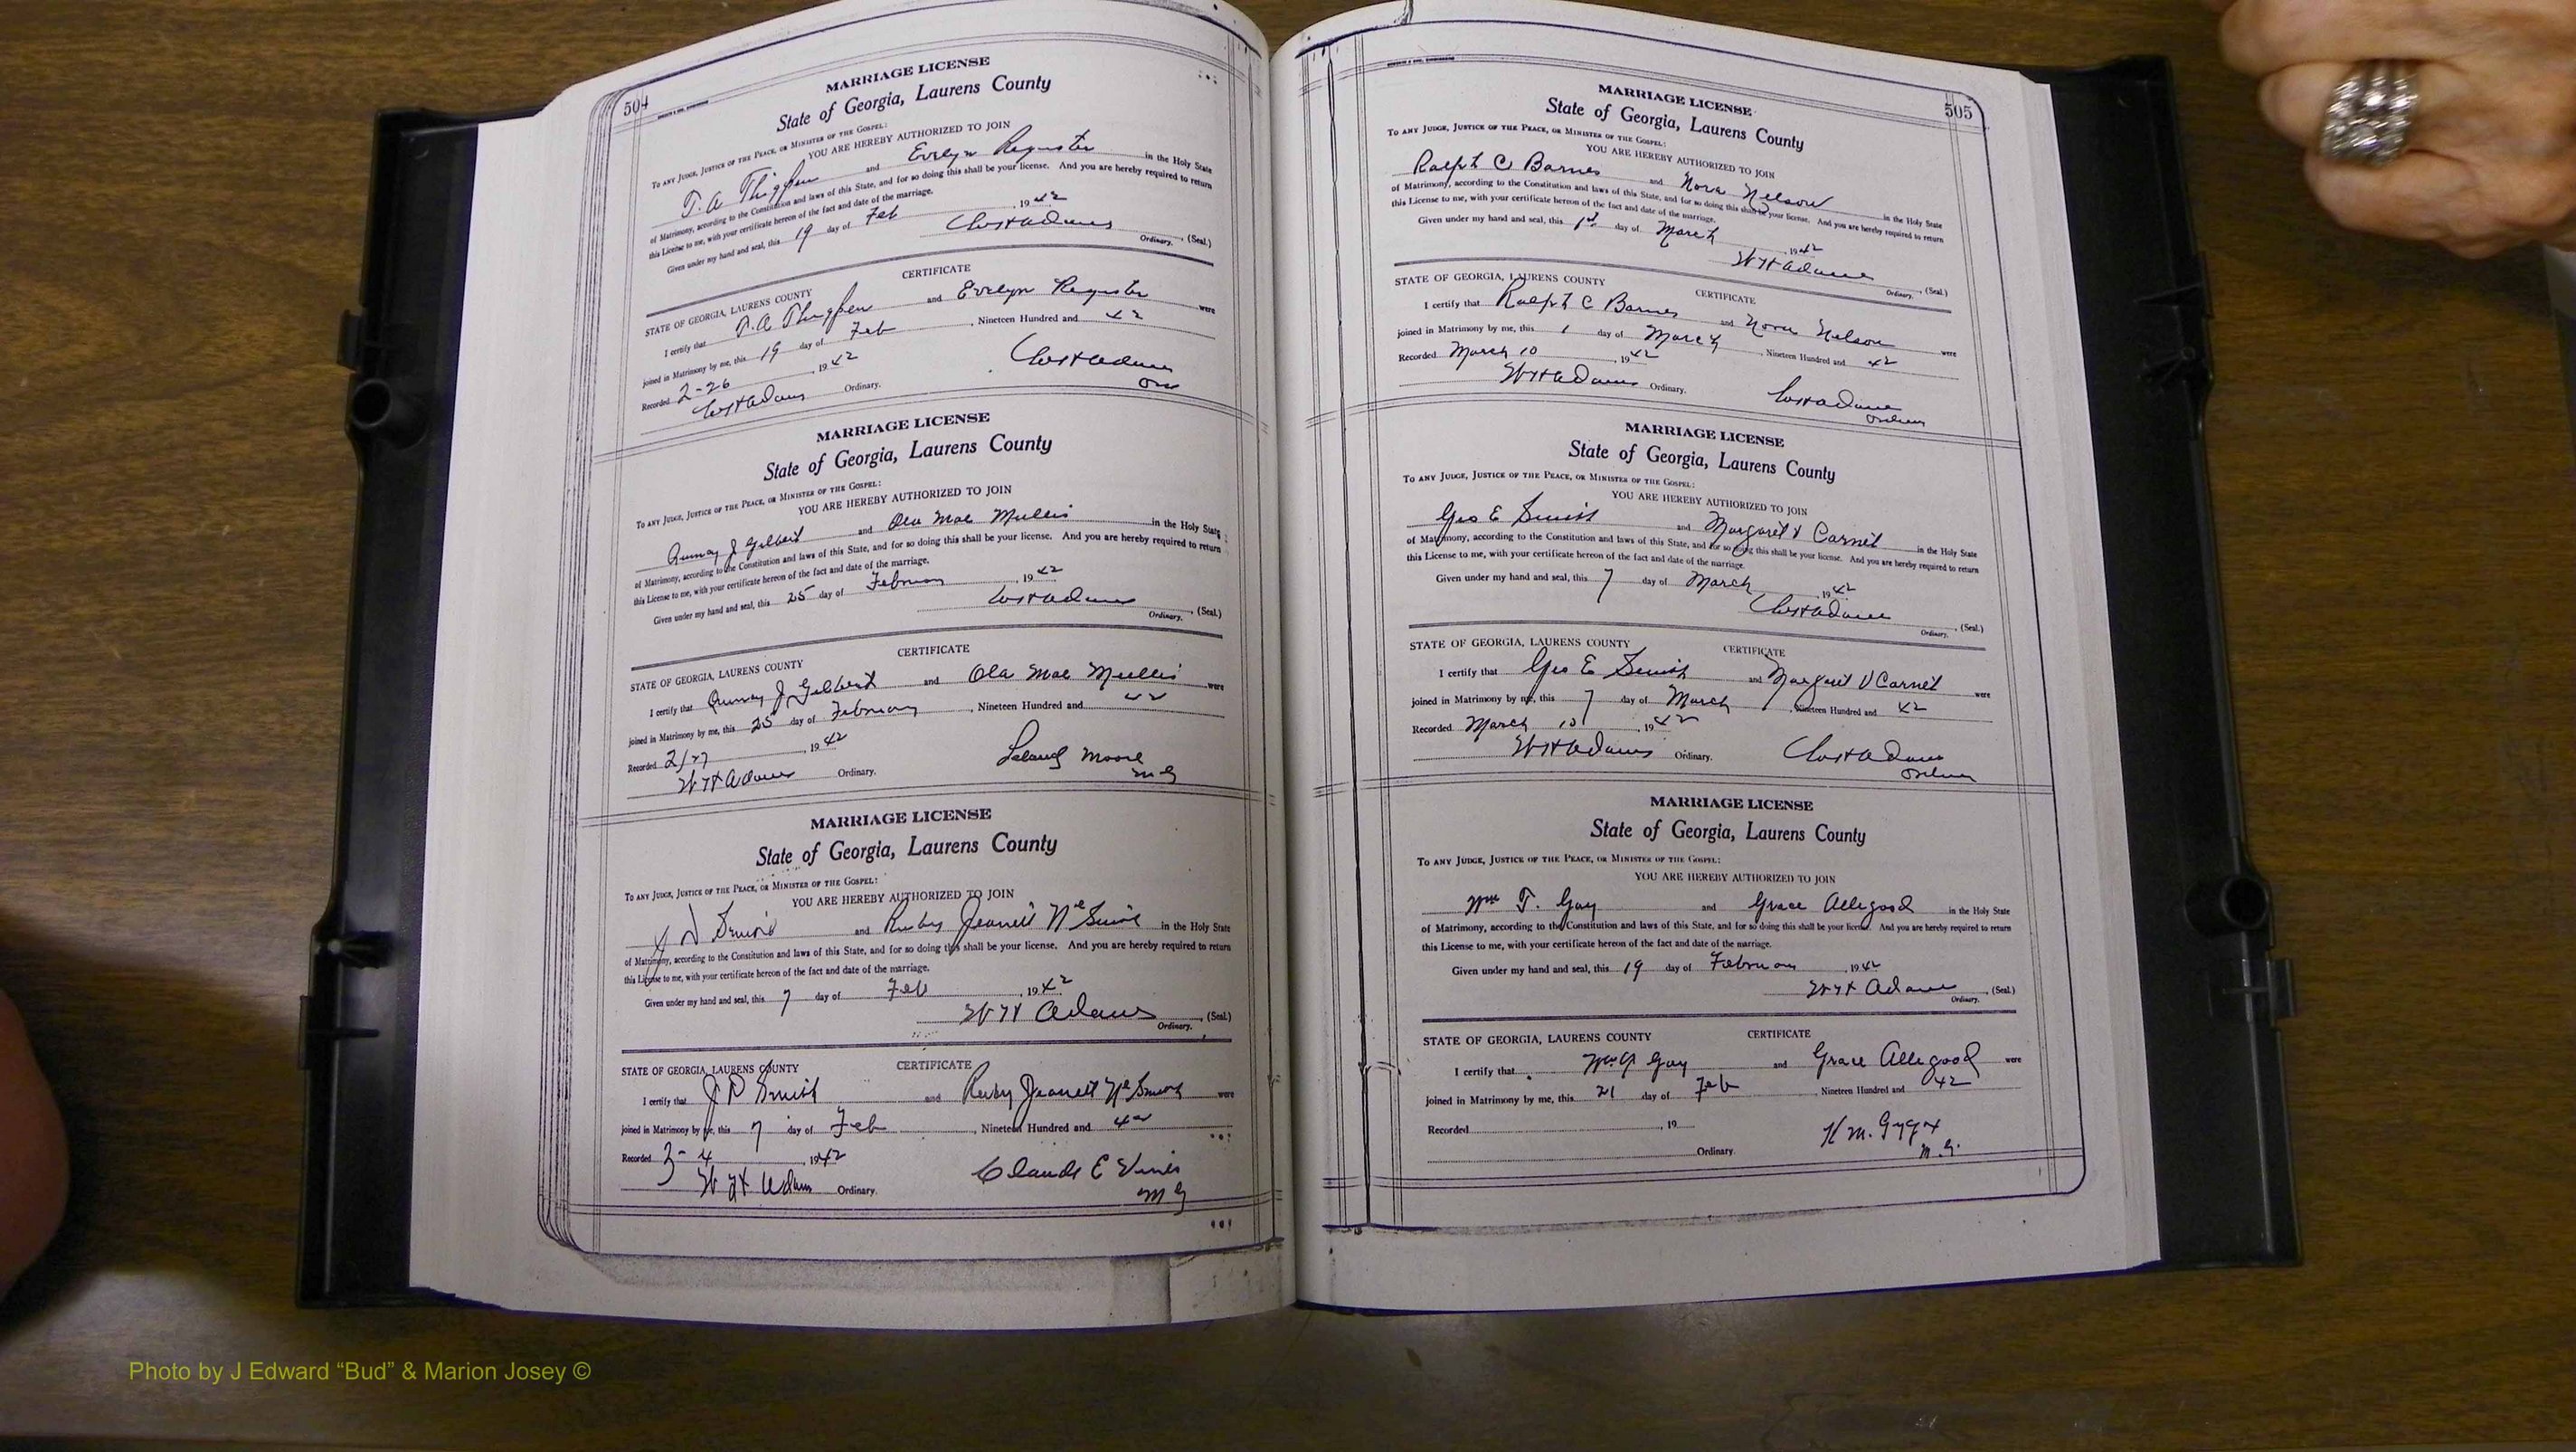 504
MARRIAGE LICENSE
State of Georgia, Laurens County
To any Judge, Justice of the Peace, or Minister of the Gospel:
YOU ARE HEREBY AUTHORIZED TO JOIN
T. A Thigpen and Evelyn Register in the Holy State
of Matrimony, according to the Constitution and laws of this State, and for so doing this shall be your license. And you are hereby required to return
this License to me, with your certificate hereon of the fact and date of the marriage.
Given under my hand and seal, this 19 day of Feb, 1942
W H Adams
Ordinary. (Seal.)
CERTIFICATE
STATE OF GEORGIA, LAURENS COUNTY
I certify that T. A Thigpen and Evelyn Register were
joined in Matrimony by me, this 19 day of Feb, Nineteen Hundred and 42
Recorded 2-26, 1942
W H Adams Ordinary.
W H Adams
Ord
MARRIAGE LICENSE
State of Georgia, Laurens County
To any Judge, Justice of the Peace, or Minister of the Gospel:
YOU ARE HEREBY AUTHORIZED TO JOIN
J Gilbert and Ola Mae Mullis in the Holy State
of Matrimony, according to the Constitution and laws of this State, and for so doing this shall be your license. And you are hereby required to return
this License to me, with your certificate hereon of the fact and date of the marriage.
Given under my hand and seal, this 25 day of February, 1942
W H Adams
Ordinary. (Seal.)
CERTIFICATE
STATE OF GEORGIA, LAURENS COUNTY
I certify that J Gilbert and Ola Mae Mullis were
joined in Matrimony by me, this 25 day of February, Nineteen Hundred and 42
Recorded 2/27, 1942
W H Adams Ordinary.
Leland Moore
M G
MARRIAGE LICENSE
State of Georgia, Laurens County
To any Judge, Justice of the Peace, or Minister of the Gospel:
YOU ARE HEREBY AUTHORIZED TO JOIN
J D Smith and Ruby Jeanett in the Holy State
of Matrimony, according to the Constitution and laws of this State, and for so doing this shall be your license. And you are hereby required to return
this License to me, with your certificate hereon of the fact and date of the marriage.
Given under my hand and seal, this 7 day of Feb, 1942
W H Adams
Ordinary. (Seal.)
CERTIFICATE
STATE OF GEORGIA, LAURENS COUNTY
I certify that J D Smith and Ruby Jeanett were
joined in Matrimony by me, this 7 day of Feb, Nineteen Hundred and 42
Recorded 3-4, 1942
W H Adams Ordinary.
Claude E Vines
M G
505
MARRIAGE LICENSE
State of Georgia, Laurens County
To any Judge, Justice of the Peace, or Minister of the Gospel:
YOU ARE HEREBY AUTHORIZED TO JOIN
Ralph C Barnes and Nora Nelson in the Holy State
of Matrimony, according to the Constitution and laws of this State, and for so doing this shall be your license. And you are hereby required to return
this License to me, with your certificate hereon of the fact and date of the marriage.
Given under my hand and seal, this 1st day of March, 1942
W H Adams
Ordinary. (Seal.)
STATE OF GEORGIA, LAURENS COUNTY CERTIFICATE
I certify that Ralph C Barnes and Nora Nelson were
joined in Matrimony by me, this 1 day of March, Nineteen Hundred and 42
Recorded March 10, 1942
W H Adams Ordinary.
W H Adams
Ordinary
MARRIAGE LICENSE
State of Georgia, Laurens County
To any Judge, Justice of the Peace, or Minister of the Gospel:
YOU ARE HEREBY AUTHORIZED TO JOIN
Geo E Smith and Margaret V Carnet in the Holy State
of Matrimony, according to the Constitution and laws of this State, and for so doing this shall be your license. And you are hereby required to return
this License to me, with your certificate hereon of the fact and date of the marriage.
Given under my hand and seal, this 7 day of March, 1942
W H Adams
Ordinary. (Seal.)
STATE OF GEORGIA, LAURENS COUNTY CERTIFICATE
I certify that Geo E Smith and Margaret V Carnet were
joined in Matrimony by me, this 7 day of March, Nineteen Hundred and 42
Recorded March 10, 1942
W H Adams Ordinary.
W H Adams
Ordinary
MARRIAGE LICENSE
State of Georgia, Laurens County
To any Judge, Justice of the Peace, or Minister of the Gospel:
YOU ARE HEREBY AUTHORIZED TO JOIN
Wm T. Gay and Grace Allegood in the Holy State
of Matrimony, according to the Constitution and laws of this State, and for so doing this shall be your license. And you are hereby required to return
this License to me, with your certificate hereon of the fact and date of the marriage.
Given under my hand and seal, this 19 day of February, 1942
W H Adams
Ordinary. (Seal.)
STATE OF GEORGIA, LAURENS COUNTY CERTIFICATE
I certify that Wm T Gay and Grace Allegood were
joined in Matrimony by me, this 21 day of Feb, Nineteen Hundred and 42
Recorded, 19
Ordinary.
M. G.
Photo by J Edward “Bud” & Marion Josey ©